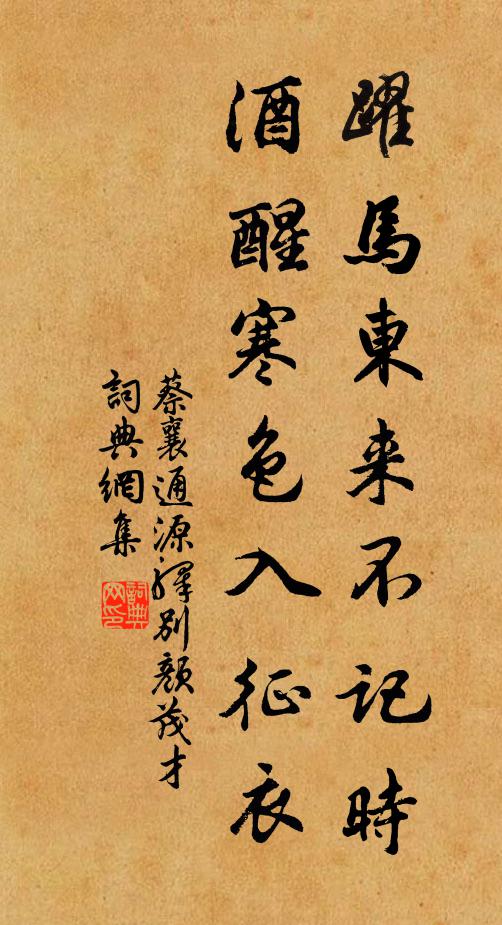 躍馬東来不記時
酒醒寒色入征衣
蔡襄通源驛別顏茂才
詞典網集
詞典网印